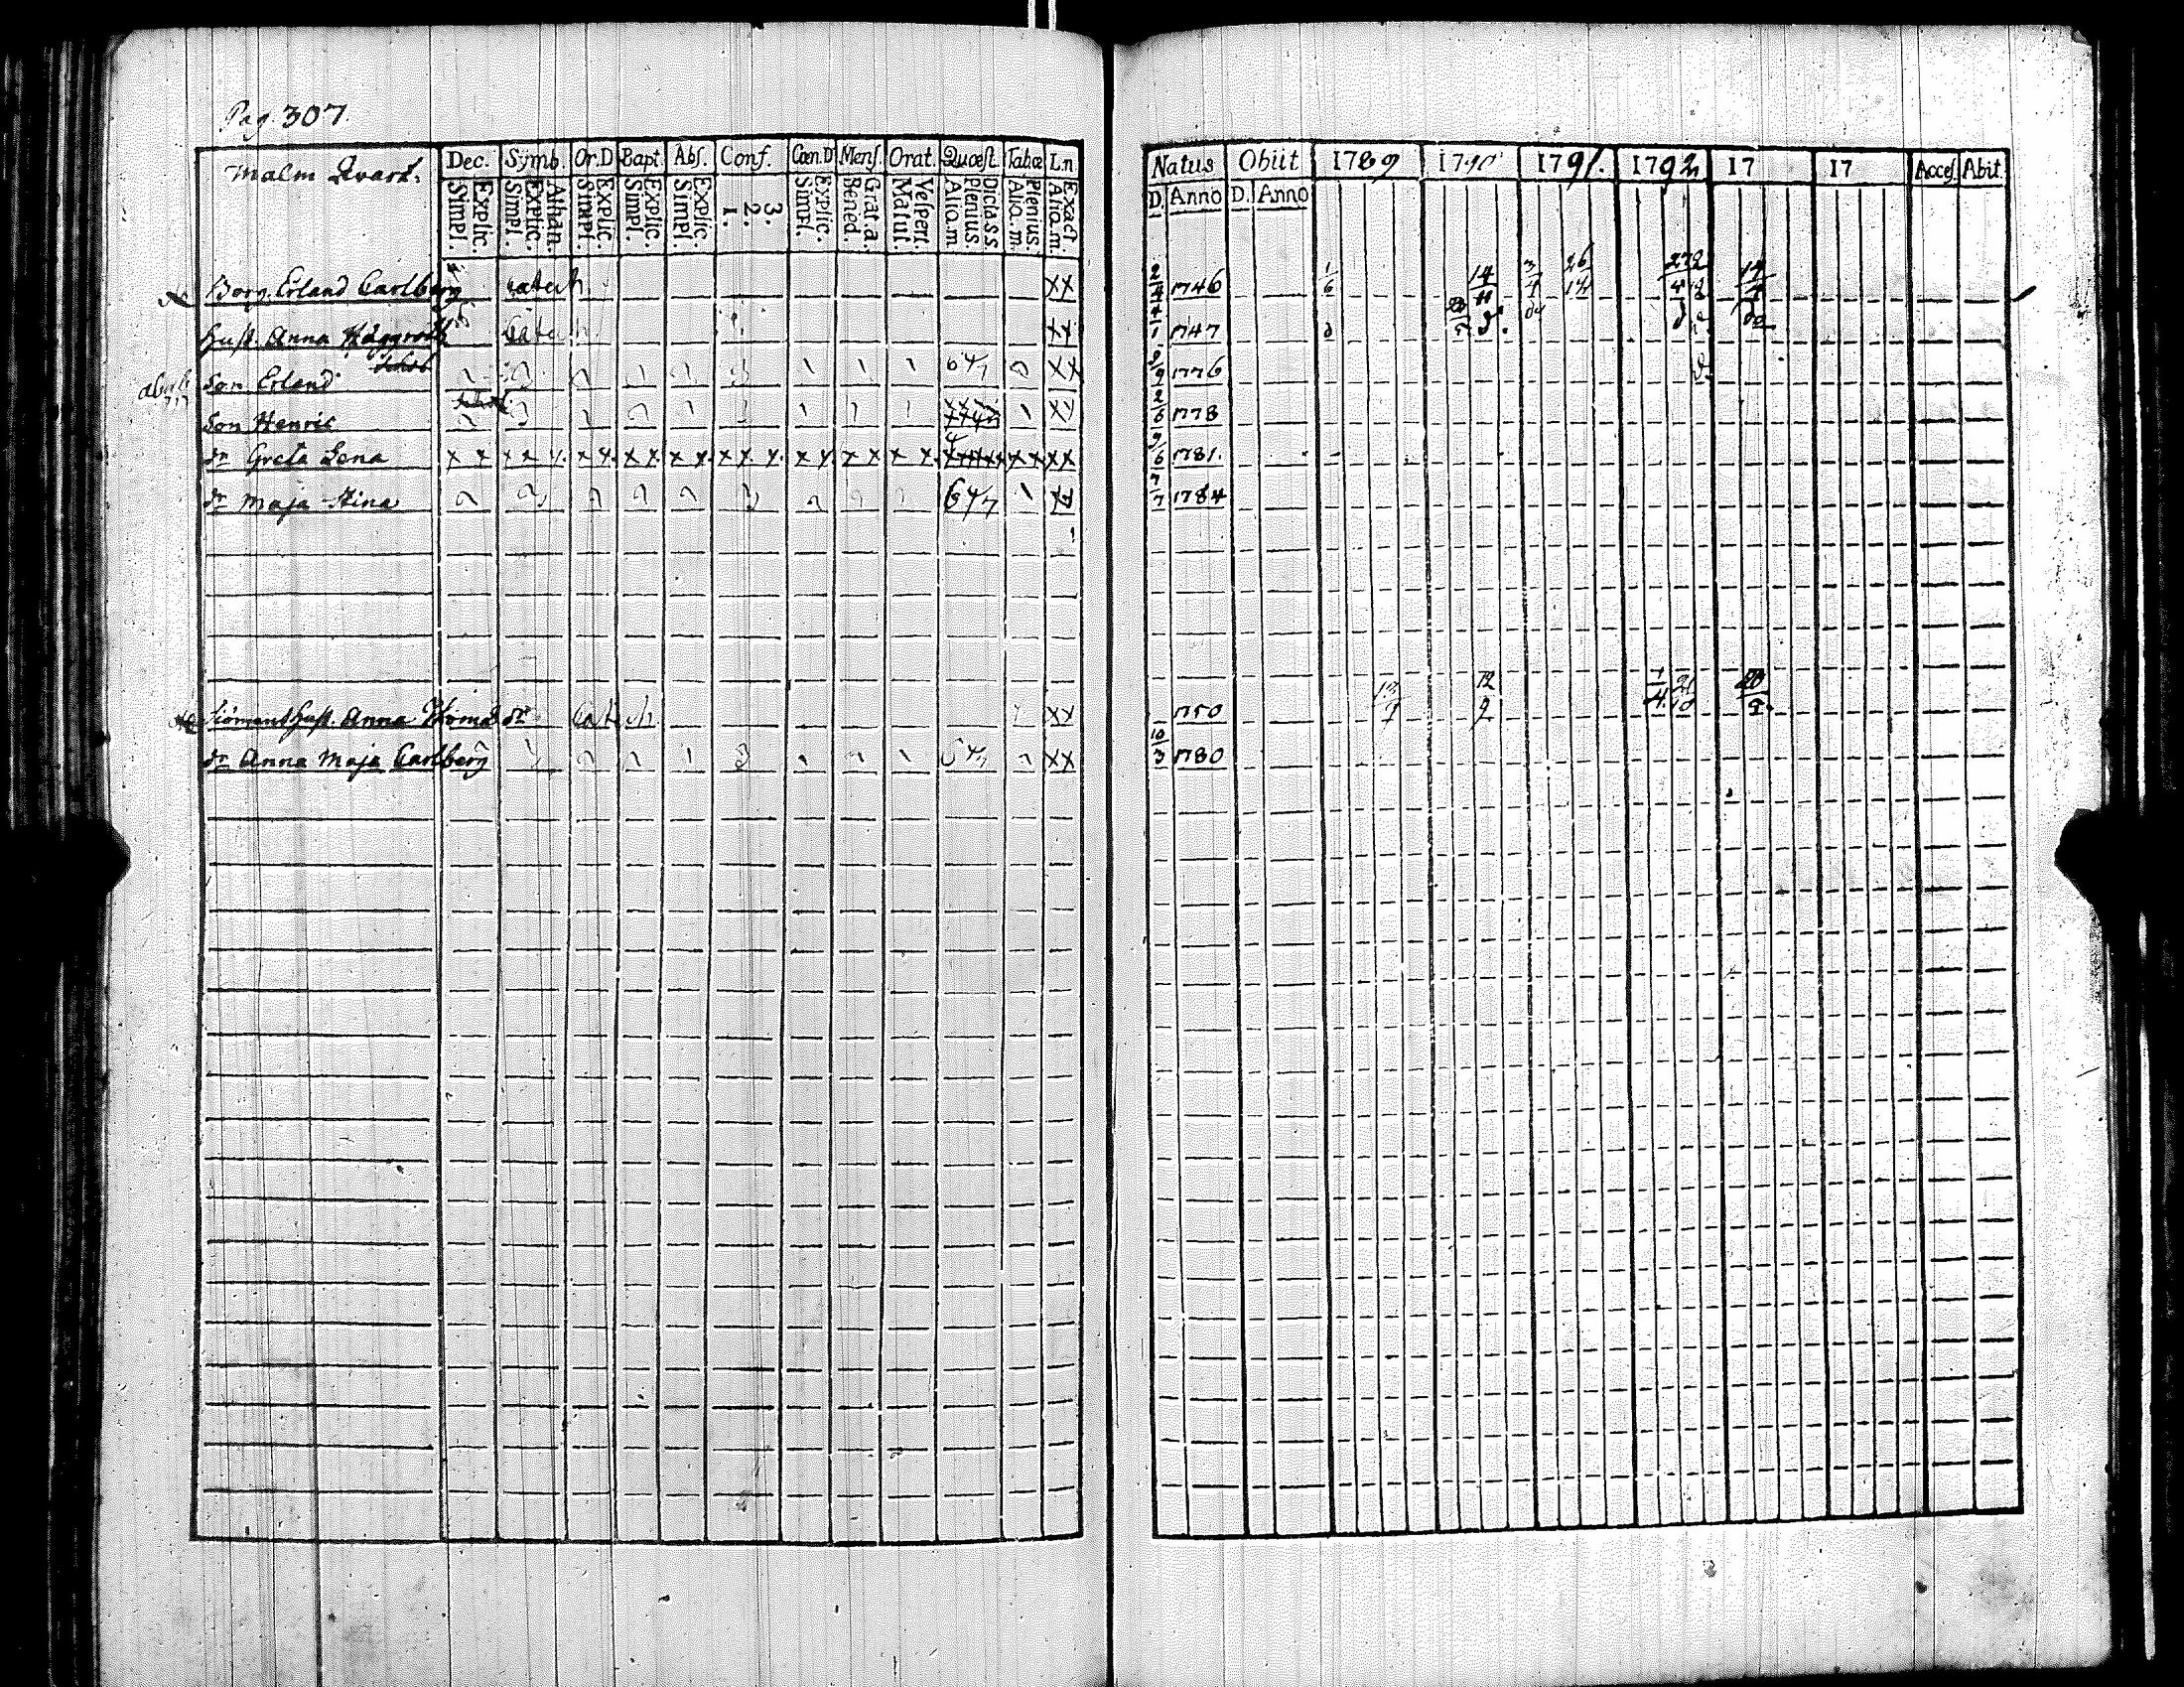 Pag. 307.
Malm Qvart.
Dec. Symb. Or.D Bapt. Abs. Conf. Cœn.D Mens. Orat. Quœst. Tabæ Ln
Explic. Simpl. Athan. Explic. Simpl. Explic. Simpl. Explic. Simpl. Explic. Simpl. 3. 2. 1. Explic. Simpl. Grat.a. Bened. Vespert. Matut. Dicta ss. Plenius. Alio.m. Plenius. Alio.m. Exact. Alio.m.
Natus Obiit 1789 1790 1791. 1792 17 17 Acces. Abit.
D. Anno D. Anno
Borg. Erland Carlberg catech. XX 2/4 1746 1/6 14/11 3/4 26/14 14/4
Hust. Anna Catech XX 4/1 1747
Son Erland 647 XX 9/9 1776
Son Henric XX 2/6 1778
dr Greta Lena x x x x x. x x. x x x x. x x x. x x x x x x. x x XX 9/6 1781.
dr Maja Stina 647 7/7 1784
Hust. Anna Thomæ dr Catech. XX 1750 12/9 12/9 1/4 21/10
dr Anna Maja Carlberg 647 XX 10/3 1780